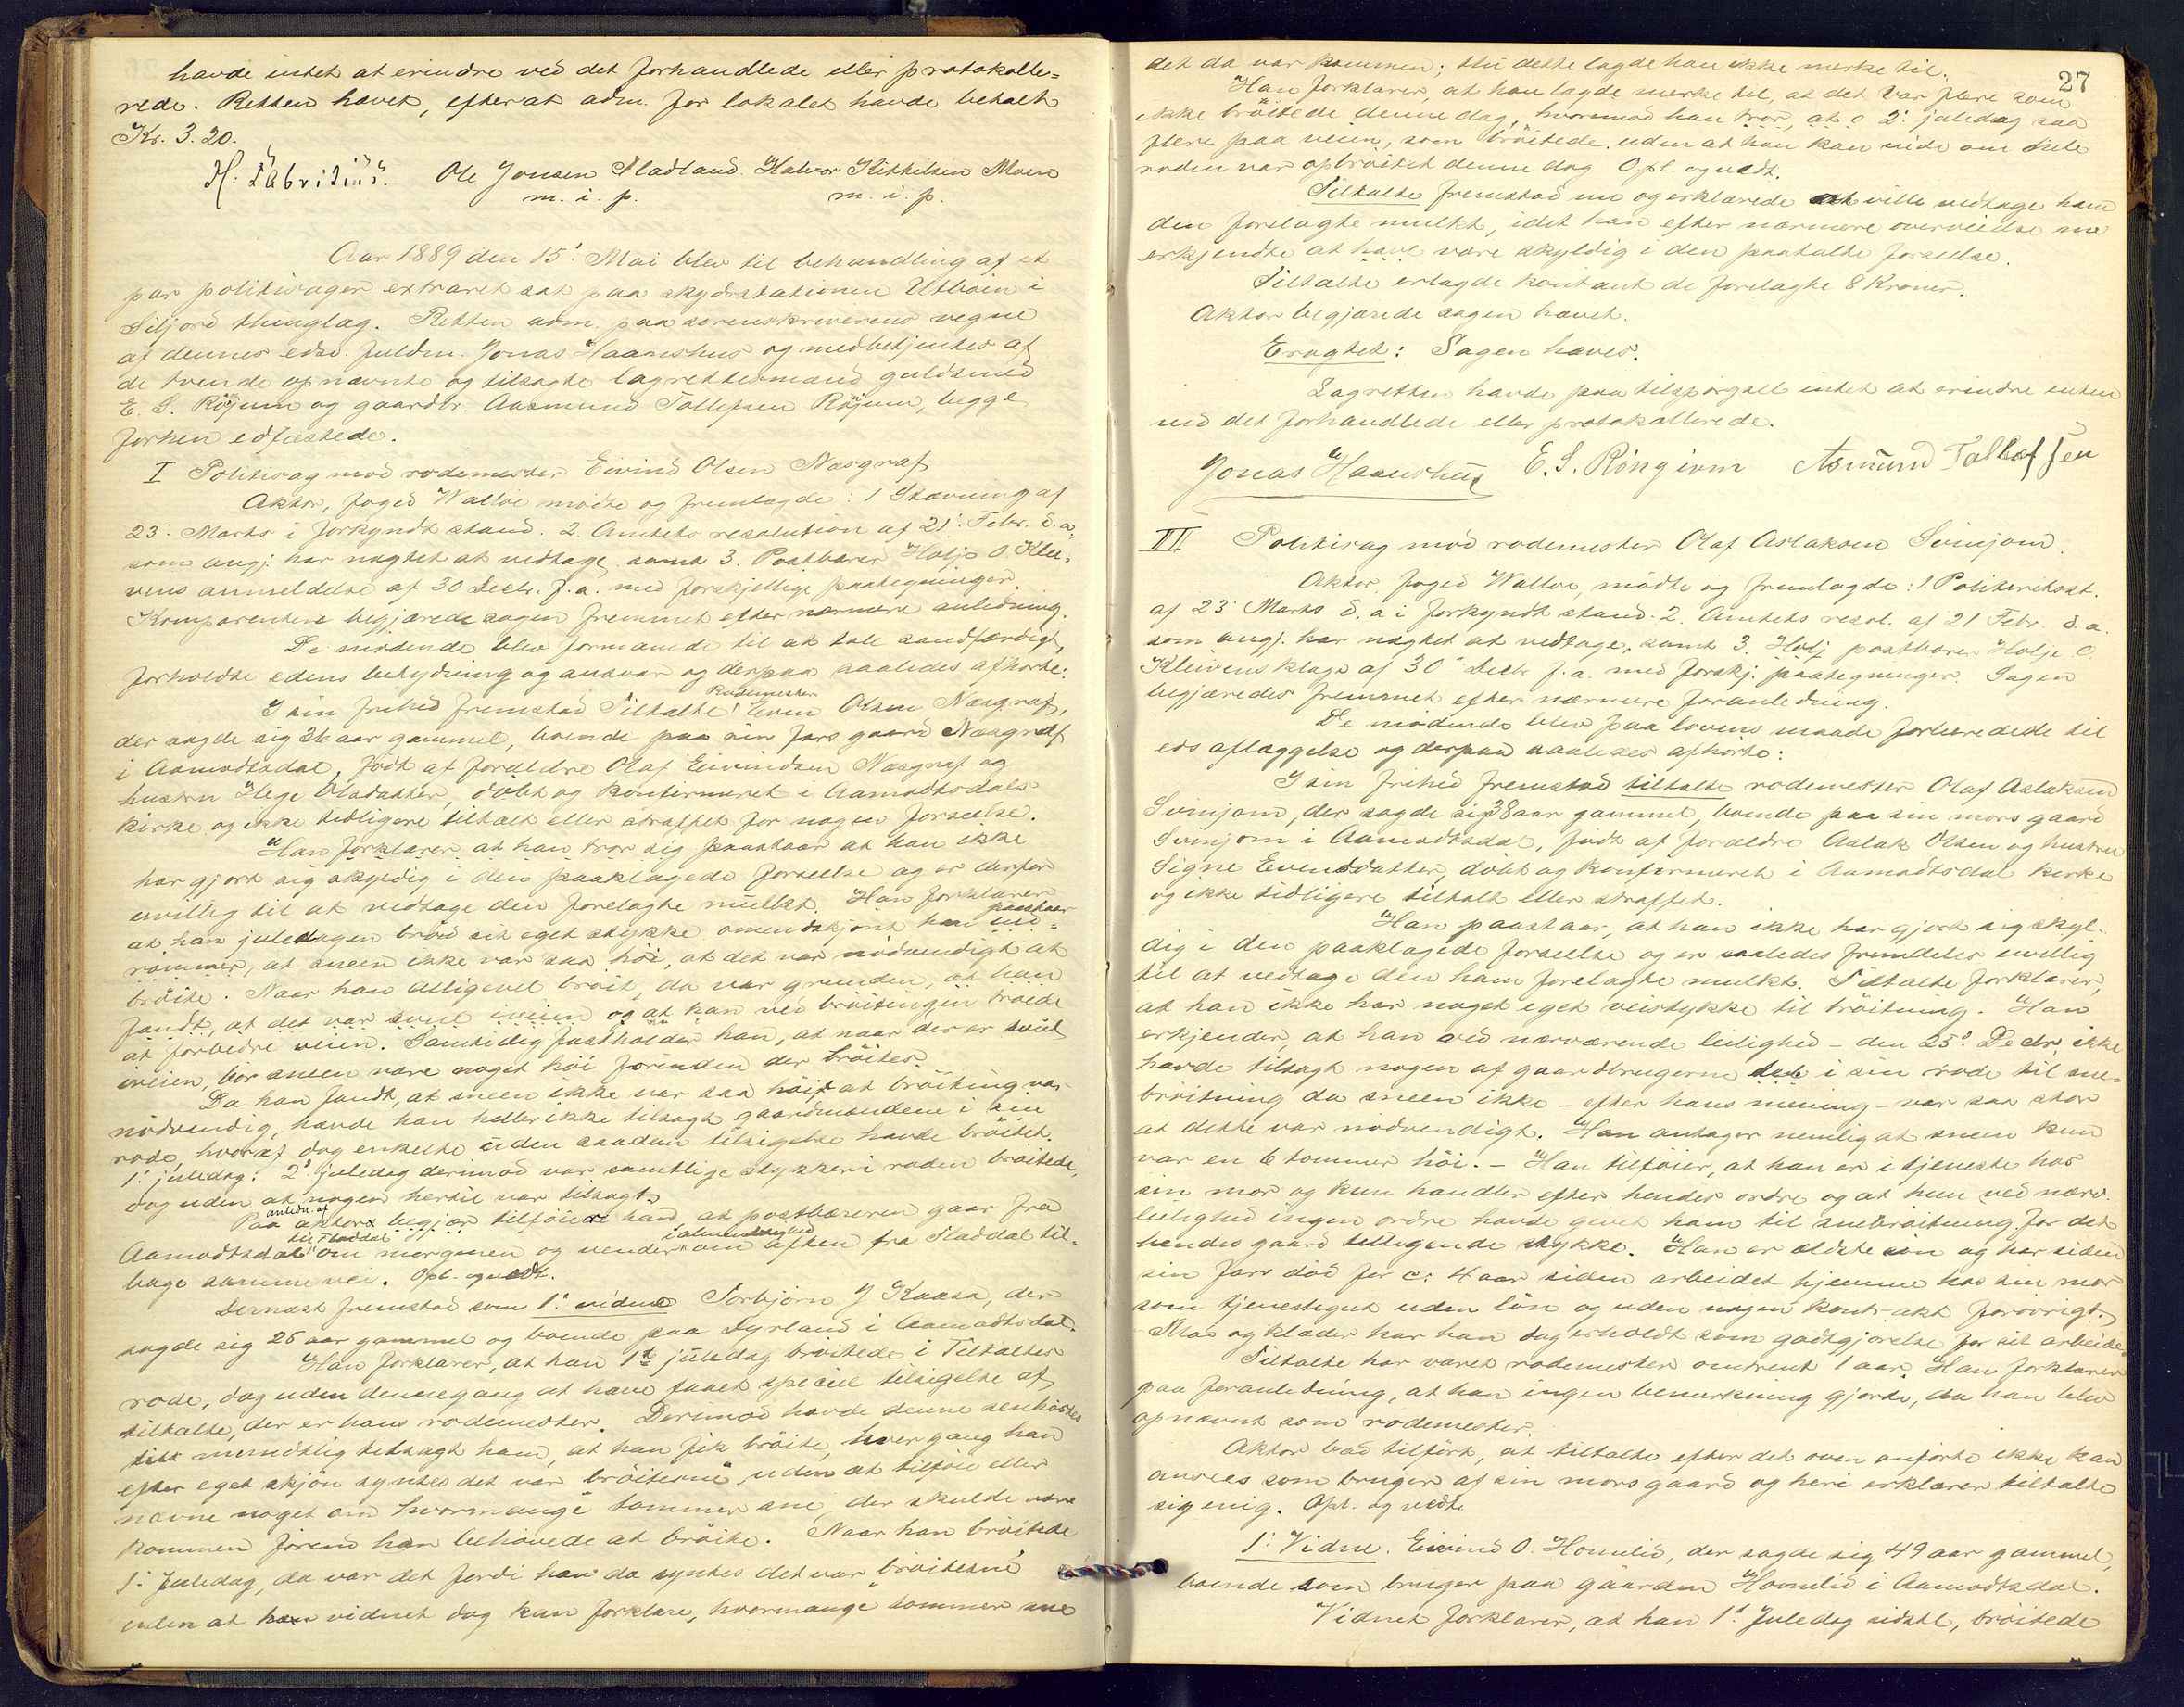 havde intet at erindre ved det forhandlede eller protokolle-
rede. Retten hævet, efterat adm. for lokalet havde betalt
Kr. 3.20.
H. Fabritius. Ole Jonsen Fladland. Halvor Kittilsen Moen
m. i. p. m. i. p.
Aar 1889 den 15' Mai blev til behandling af et
par politisager extraret sat paa skydsstationen Utbøen i
Siljord thinglag. Retten adm. paa sorenskriverens vegne
af dennes edsv. fuldm. Jonas Haanshus og medbetjentes af
de tvende opnævnte og tilsagte lagrettesmænd guldsmed
E. S. Röjum og gaardbr. Aasmund Tollefsen Röjum, begge
forhen edfæstede.
I Politisag mod rodemester Eivind Olsen Næsgraf
Aktor, foged Walløe mødte og fremlagde: 1 Stævning af
23' Marts i forkyndt stand. 2. Amtets resolution af 21' Febr. d.a.
som angj. har nægtet at vedtage samt 3. Postbærer Holje O. Klei-
vens anmeldelse af 30 Decbr. f.a. med forskjellige paategninger.
Komparenten begjærede sagen fremmet efter nærmere anledning.
De mødende blev formanede til at tale sandfærdigt,
forholdte edens betydning og ansvar og derpaa saaledes afhørte:
Rodemester
I sin frihed fremstod Tiltalte Even Olsen Næsgraf,
der sagde sig 36 aar gammel, boende paa sin fars gaard Næsgraf
i Aamodtsdal, født af forældre Olaf Eivindsen Næsgraf og
hustru Hege Olsdatter, döbt og konfirmeret i Aamodtsdals
kirke og ikke tidligere tiltalt eller straffet for nogen forseelse.
Han forklarer at han tror sig paastaar at han ikke
har gjort sig skyldig i den paaklagede forseelse og er derfor
uvillig til at vedtage den forelagte mulkt. Han forklarer
paastaar
at han juledagen bröid sit eget stykke omendskjönt han ind-
römmer, at sneen ikke var saa höi, at det var nödvendigt at
bröite. Naar han alligevel bröit, da var grunden, at han
fandt, at det var svul iveien og at han ved bröitingen troede
at forbedre veien. Samtidig fastholder han, at naar der er svul
iveien, bör sneen være noget höi forinden der bröites.
Da han fandt, at sneen ikke var saa höi at bröiting var
nödvendig, havde han heller ikke tilsagt gaardmændene i sin
rode, hvoraf dog enkelte uden saadan tilsigelse havde bröitet.
1' juledag. 2' juledag derimod var samtlige stykker i roden bröitede,
dog uden at nogen hertil var tilsagt.
anledn. af
Paa aktors begjær tilföier han at postbæreren gaar fra
til Fladdal i almindelighed
Aamodtsdal om morgenen og vender om aften fra Fladdal til-
bage samme vei. Opl. og vedt.
Dernæst fremstod som 1' vidne Torbjörn J Kaasa, der
sagde sig 26 aar gammel og boende paa Dyrland i Aamodtsdal.
Han forklarer, at han 1ste juledag bröitede i Tiltaltes
rode, dog uden dennegang at have faaet speciel tilsigelse af
tiltalte, der er hans rodemester. Derimod havde denne senhöstes
mundtlig tilsagt ham, at han fik bröite, hver gang han
efter eget skjön syntes det var "bröitesne" uden at tilföie eller
nævne noget om hvormange tommer sne, der skulde være
kommen förend han behövede at bröite. Naar han bröitede
1' Juledag, da var det fordi han da syntes det var "bröitesne"
uden at vidnet dog kan forklare, hvormange tommer sne
27
det da var kommen; thi dette lagde han ikke mærke til.
Han forklarer, at han lagde mærke til, at det var flere som
ikke bröitede denne dag, hvormod han tror, at 2' juledag saa
flere paa veien, som bröitede, uden at han kan vide om hele
roden var opbröitet denne dag Opl. og vedt.
Tiltalte fremstod nu og erklærede at ville vedtage ham
den forelagte mulkt, idet han efter nærmere overveielse nu
erkjendte at have være skyldig i den paatalte forseelse.
Tiltalte erlagde kontant de forelagte 8 Kroner.
Aktor begjærede sagen hævet.
Eragtet: Sagen hæves.
Lagretten havde paa tilspørgsel intet at erindre enten
ved det forhandlede eller protokollerede.
Jonas Haanshus E. S. Röngium Asmund Tallefsen
II Politisag mod rodemester Olaf Aslaksen Svinjom.
Aktor, foged Walløe, mødte og fremlagde: 1. Politiretsst.
af 23' Marts d.a i forkyndt stand. 2. Amtets resol. af 21 Febr. d.a.
som angj. har nægtet at vedtage, samt 3. Holj postbærer Holje O.
Kleivens klage af 30' Decbr f.a. med forskj. paategninger. Sagen
begjæredes fremmet efter nærmere foranledning.
De mødende blev paa lovens maade forberedede til
eds aflæggelse og derpaa saaledes afhørte:
I sin frihed fremstod tiltalte rodemester Olaf Aslaksen
Svinjom, der sagde sig 38 aar gammel, boende paa sin mors gaard
Svinjom i Aamodtsdal, født af forældre Aslak Olsen og hustru
Signe Evensdatter, döbt og konfirmeret i Aamodtsdal kirke
og ikke tidligere tiltalt eller straffet.
Han paastaar, at han ikke har gjort sig skyl-
dig i den paaklagede forseelse og er saaledes fremdeles uvillig
til at vedtage den ham forelagte mulkt. Tiltalte forklarer,
at han ikke har noget eget veistykke til bröitning. Han
erkjender, at han ved nærværende leilighed - den 25' Decbr, ikke
havde tilsagt nogen af gaardbrugerne i sin rode til sne-
bröitning da sneen ikke - efter hans mening - var saa stor
at dette var nödvendigt. Han antager nemlig at sneen kun
var en 6 tommer höi. - Han tilföier, at han er i tjeneste hos
sin mor og kun handler efter hendes ordre og at hun ved nærv.
leilighed ingen ordre havde givet ham til snebröitning for det
hendes gaard tilliggende stykke. Han er ældste sön og har siden
sin fars död for c: 4 aar siden arbeidet hjemme hos sin mor
som tjenestegut uden lön og uden nogen kontrakt forövrigt.
Mad og klæder har han dog erholdt som godtgjörelse for sit arbeide.
Tiltalte har været rodemester omtrent 1 aar. Han forklarer
paa foranledning, at han ingen bemærkning gjorde, da han blev
opnævnt som rodemester.
Aktor bad tilfört, at tiltalte efter det oven anförte ikke kan
ansees som bruger af sin mors gaard og heri erklærer tiltalte
sig enig. Opl. og vedt.
1' Vidne. Eivind O. Homelid, der sagde sig 49 aar gammel,
boende som bruger paa gaarden Homelid i Aamodtsdal.
Vidnet forklarer, at han 1' Juledag sidstl, bröitede